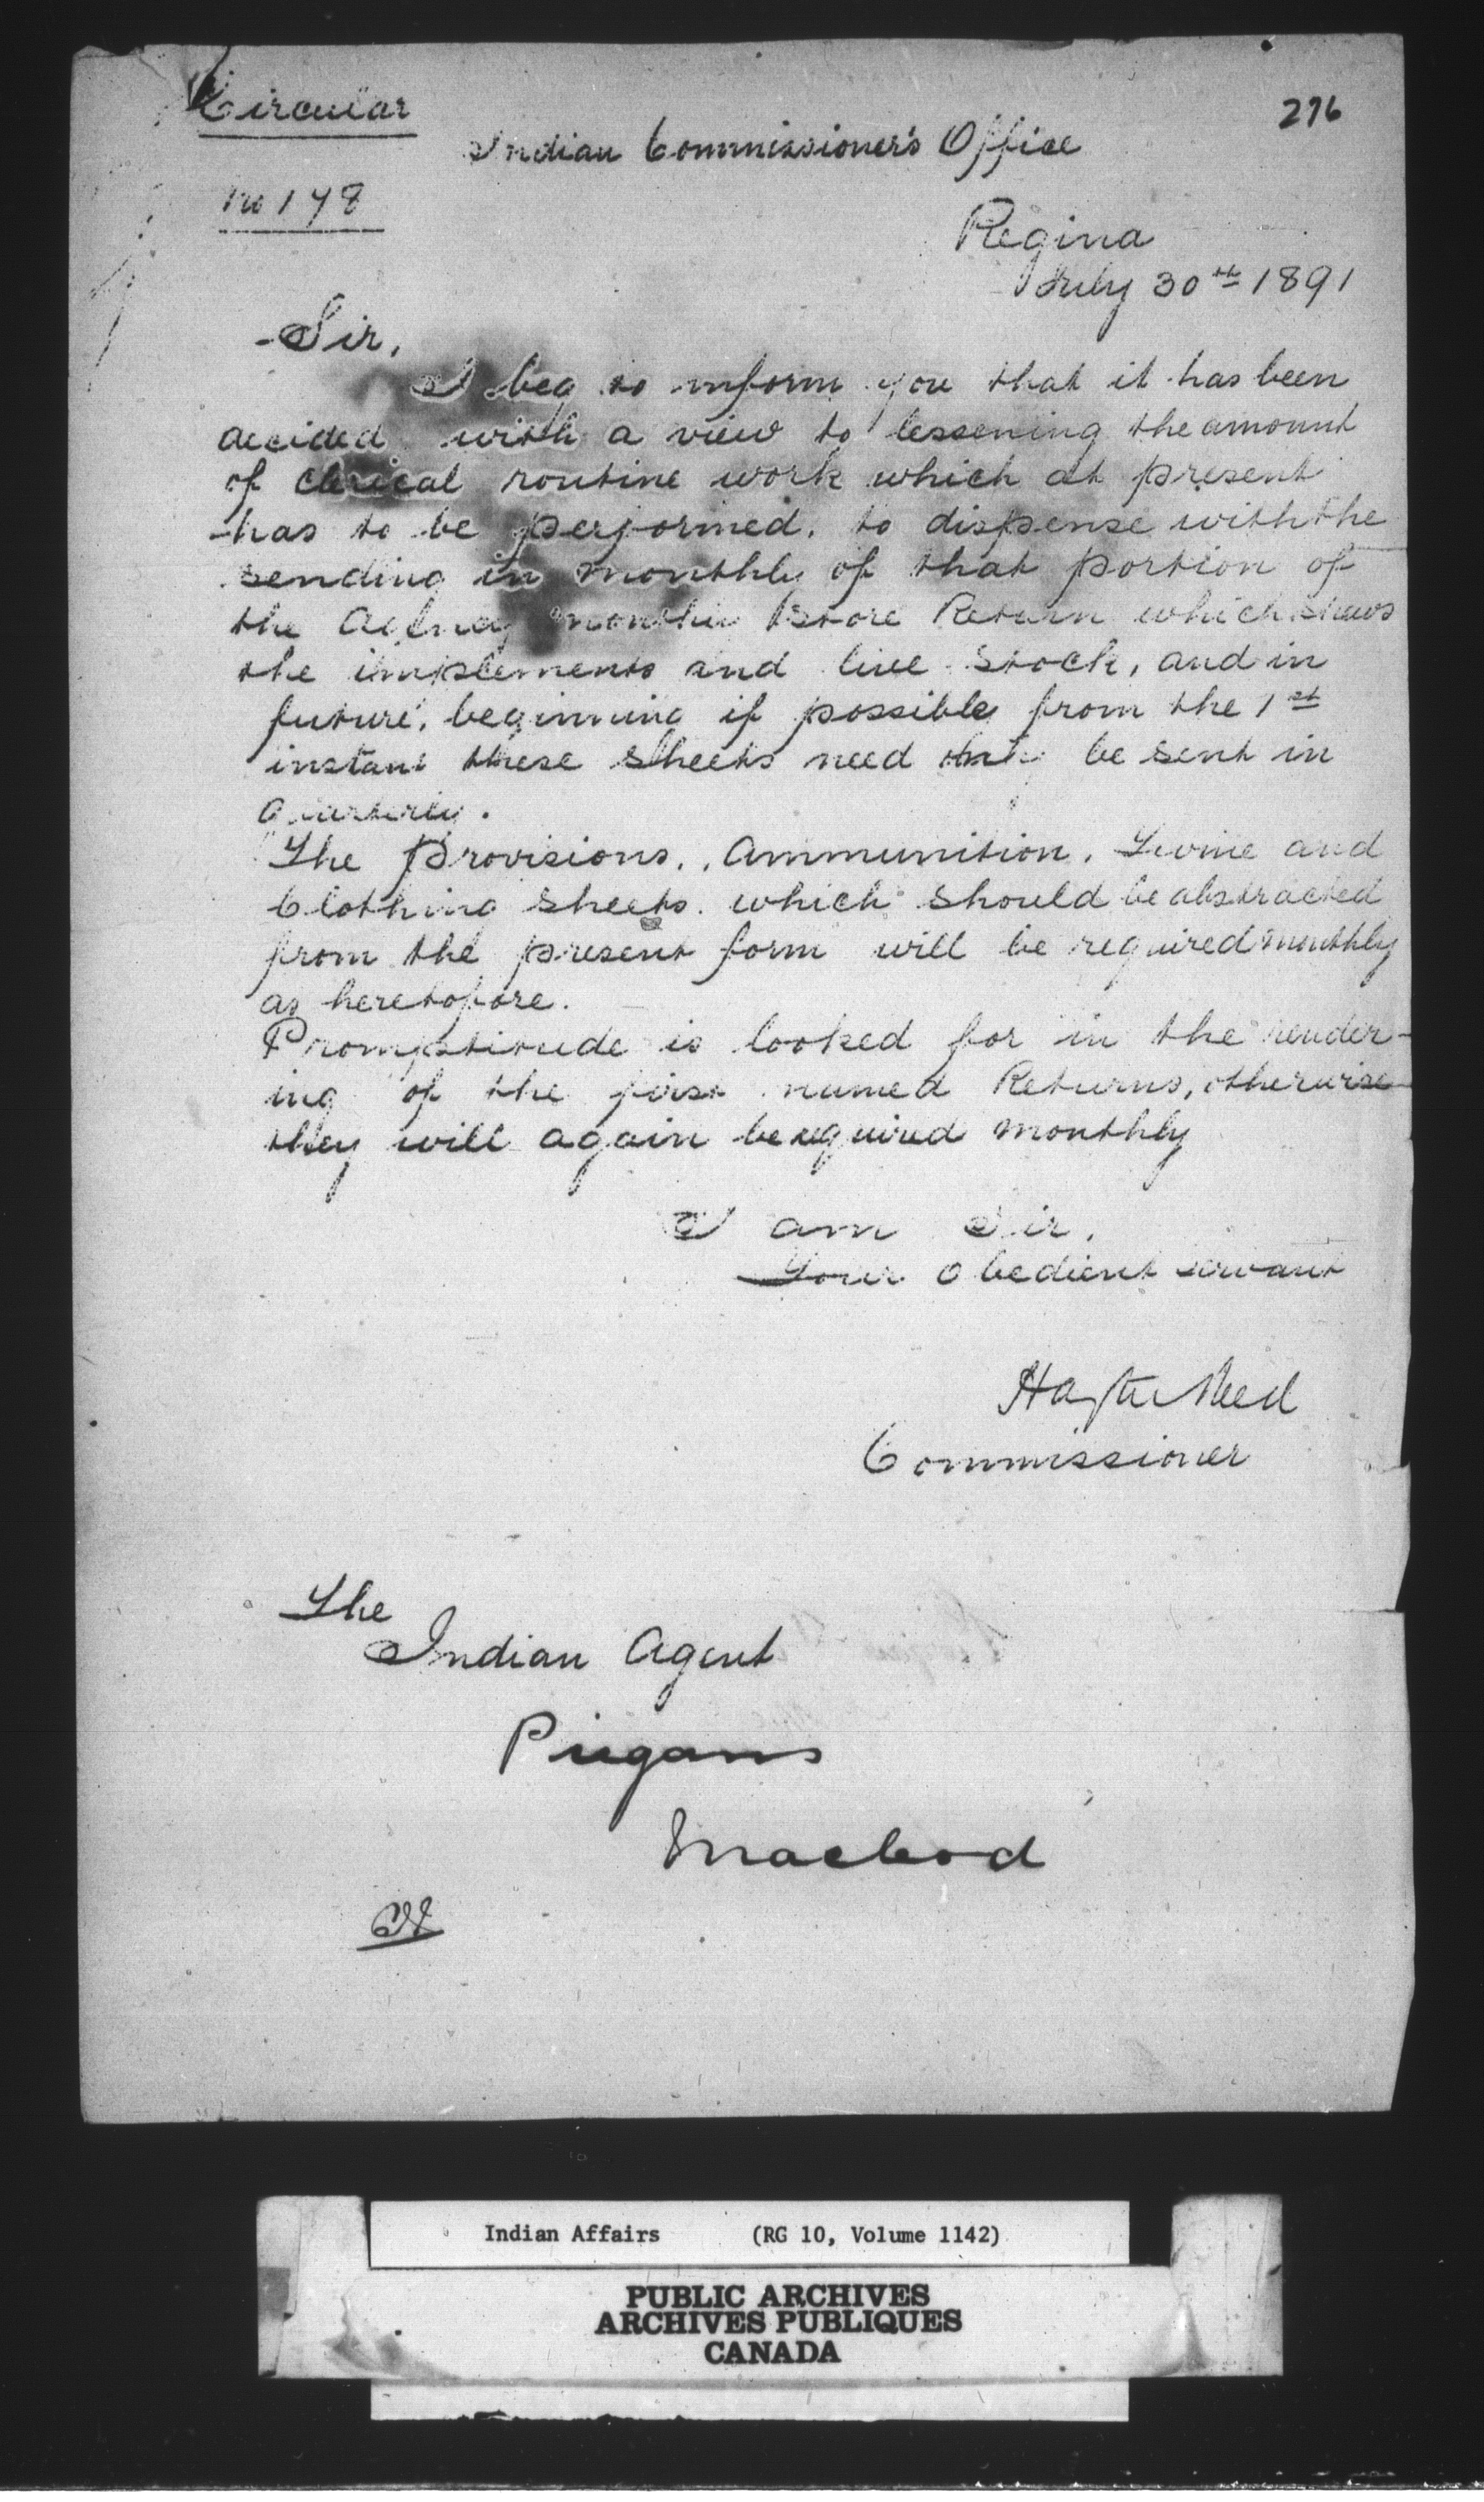 Circular
276
Indian Commissioner's Office
No 178
Regina
July 30th 1891
Sir,
I beg to inform you that it has been
decided with a view to lessening the amount
of clerical routine work which at present
has to be performed, to dispense with the
sending in monthly of that portion of
the Agency monthly Store Return which shews
the implements and live stock, and in
future, beginning if possible from the 1st
instant these sheets need only be sent in
quarterly.
The Provisions, Ammunition, Twine and
Clothing sheets which should be abstracted
from the present form will be required monthly
as heretofore.
Promptitude is looked for in the render-
ing of the first named Returns, otherwise
they will again be required monthly
I am Sir,
Your obedient servant
Hayter Reed
Commissioner
The
Indian Agent
Piegans
Macleod
Indian Affairs (RG 10, Volume 1142)
PUBLIC ARCHIVES
ARCHIVES PUBLIQUES
CANADA